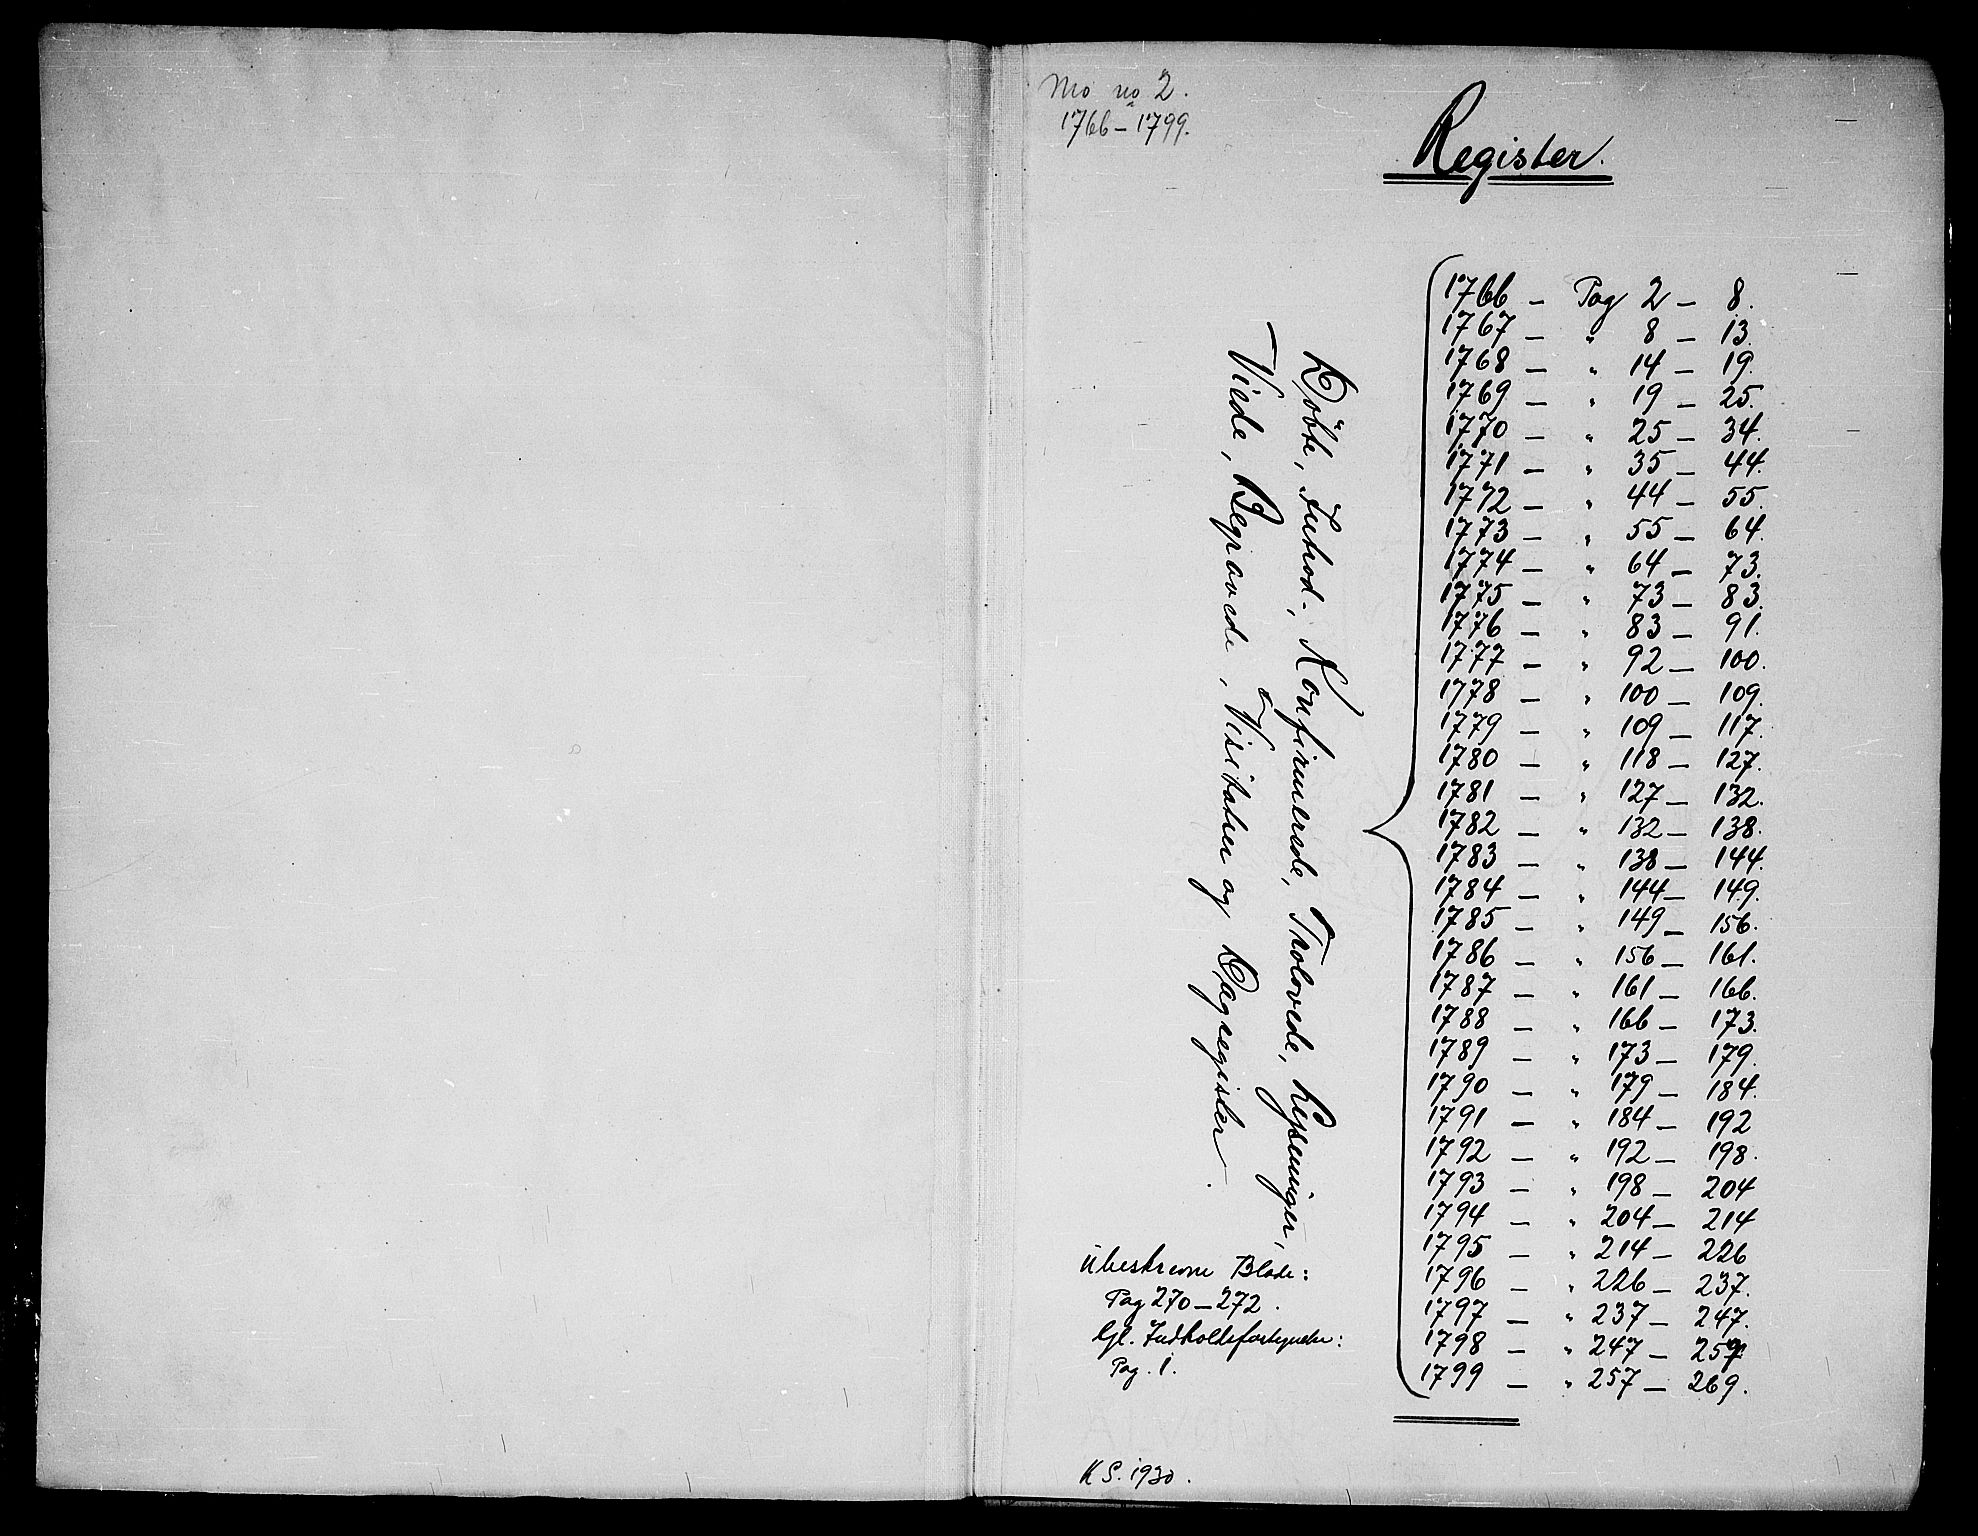 Mo no 2.
1766-1799.
Register.
Döbte, Introd., Konfirmerede, Trolovede, Lysninger,
Viede, Begravede, Visitatser og Dagregister.
1766 - Pag 2 - 8.
1767 - " 8 - 13.
1768 - " 14 - 19.
1769 - " 19 - 25.
1770 - " 25 - 34.
1771 - " 35 - 44.
1772 - " 44 - 55.
1773 - " 55 - 64.
1774 - " 64 - 73.
1775 - " 73 - 83.
1776 - " 83 - 91.
1777 - " 92 - 100.
1778 - " 100 - 109.
1779 - " 109 - 117.
1780 - " 118 - 127.
1781 - " 127 - 132.
1782 - " 132 - 138.
1783 - " 138 - 144.
1784 - " 144 - 149.
1785 - " 149 - 156.
1786 - " 156 - 161.
1787 - " 161 - 166.
1788 - " 166 - 173.
1789 - " 173 - 179.
1790 - " 179 - 184.
1791 - " 184 - 192
1792 - " 192 - 198.
1793 - " 198 - 204
1794 - " 204 - 214
1795 - " 214 - 226
1796 - " 226 - 237.
1797 - " 237 - 247.
1798 - " 247 - 257
1799 - " 257 - 269.
Ubeskrevne Blade:
Pag 270-272.
Gl. Indholdsfortegnelse:
Pag. 1.
K S. 1930.